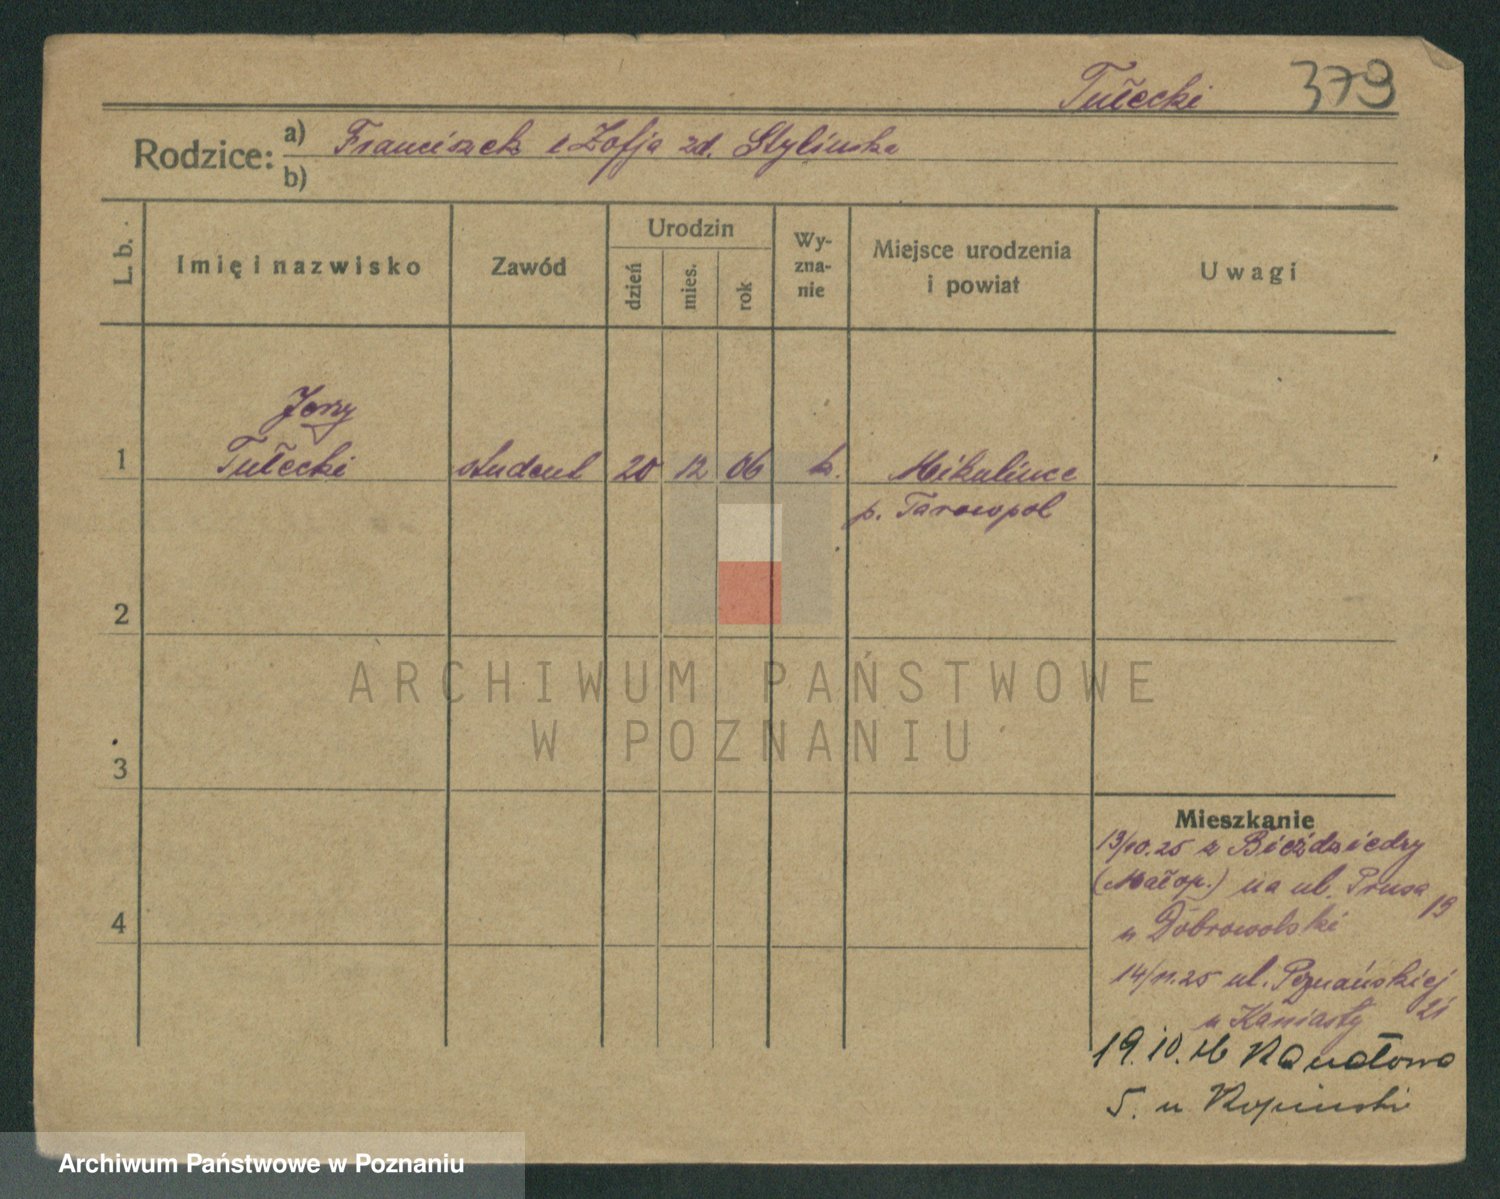 Tułecki 379
Rodzice: a) Franciszek i Zofja zd. Stylińska
b)
L. b. Imię i nazwisko Zawód Urodzin dzień mies. rok Wyznanie Miejsce urodzenia i powiat Uwagi
Jerzy
1 Tułecki student 20 12 06 k. Mikulińce
p. Tarnopol
2
ARCHIWUM PAŃSTWOWE
W POZNANIU
3
Mieszkanie
13/10.25 z Bieździedzy
(Małop.) na ul. Prusa 19
u Dobrowolski
4
14/11.25 ul. Poznańskiej 21
u Kaniasty
19.10.26
5. u
Archiwum Państwowe w Poznaniu